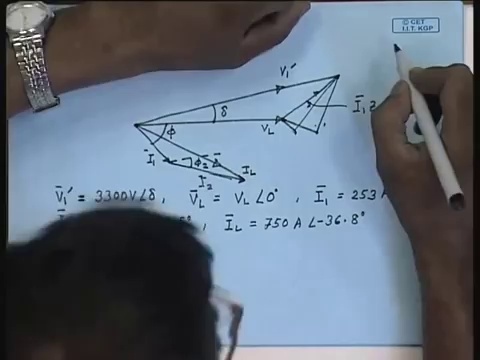 © CET
I.I.T. KGP
V₁′
δ
V_L
Ī₁ z
ϕ
Ī₁
ϕ₂
I_L
Ī₂
V̄₁′ = 3300V∠δ, V̄_L = V_L ∠0°, Ī₁ = 253 A
Ī_L = 750 A ∠-36.8°